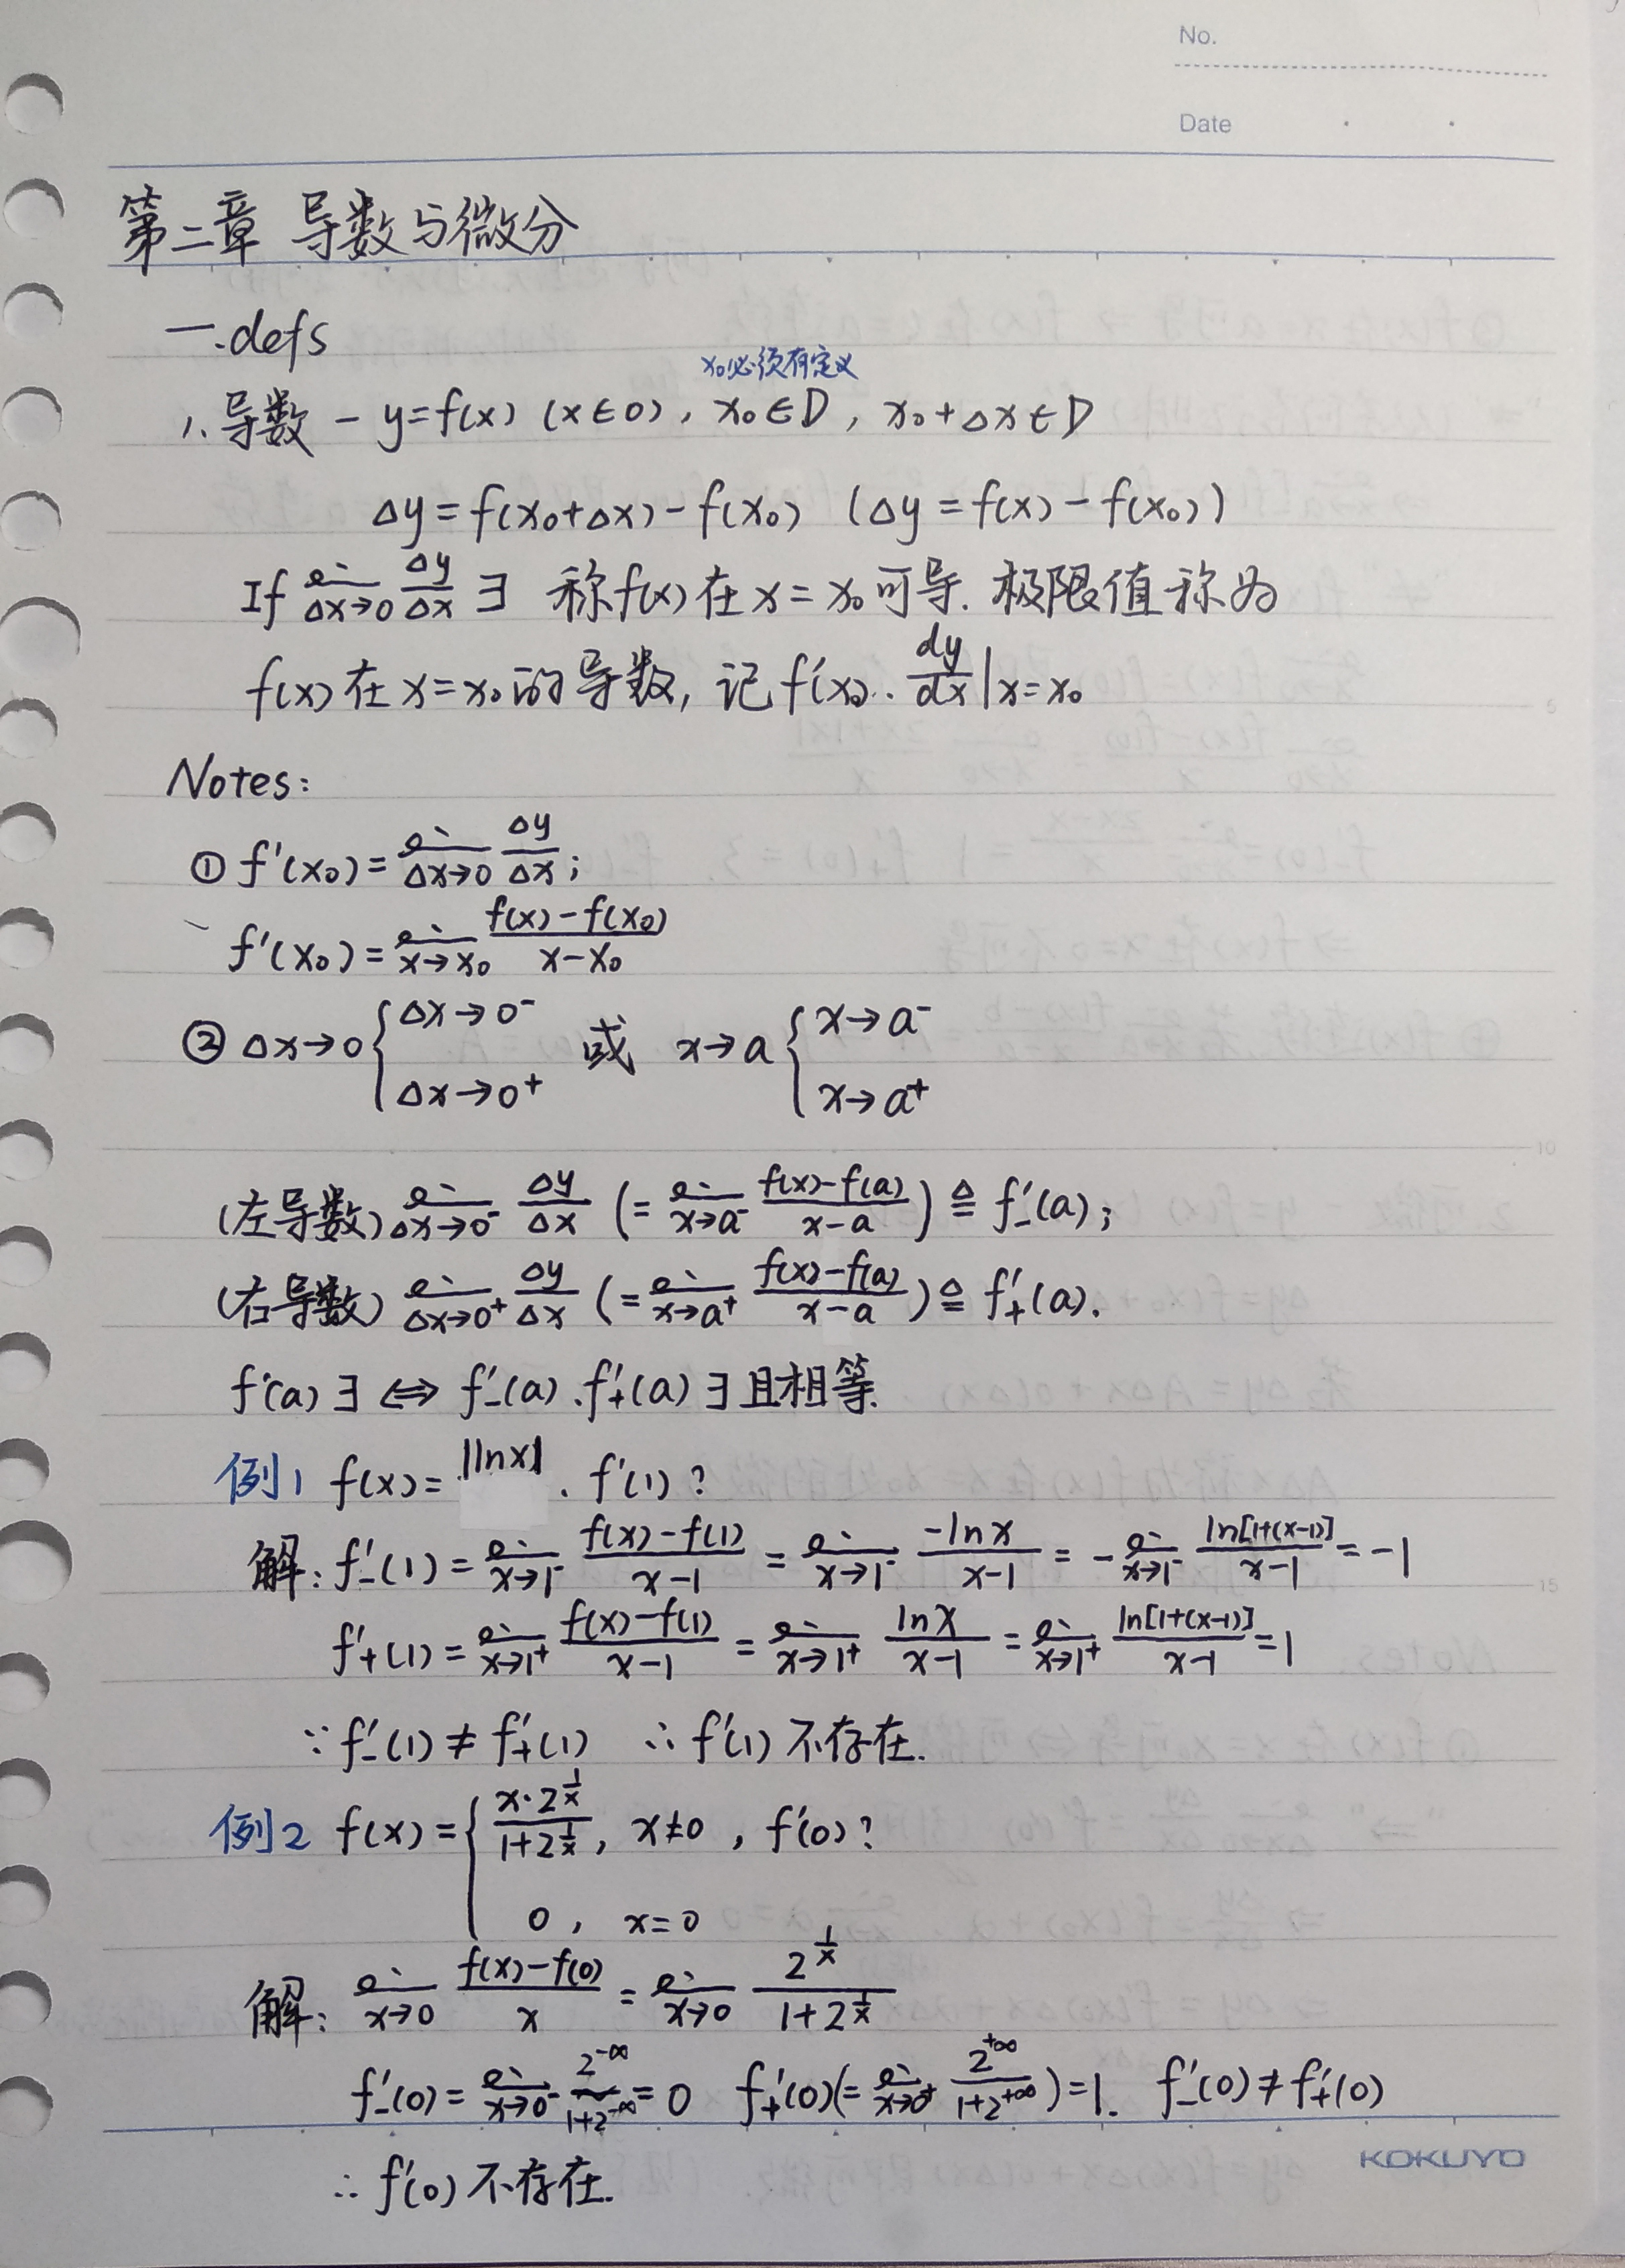 No.
Date
第二章 导数与微分
一.defs
x₀必须有定义
1. 导数 - y=f(x) (x∈D), x₀∈D, x₀+Δx∈D
Δy=f(x₀+Δx)-f(x₀) (Δy=f(x)-f(x₀))
If lim_{Δx→0} Δy/Δx ∃ 称f(x)在x=x₀可导. 极限值称为
f(x)在x=x₀的导数, 记f'(x₀). dy/dx|x=x₀
Notes:
① f'(x₀)=lim_{Δx→0} Δy/Δx;
f'(x₀)=lim_{x→x₀} (f(x)-f(x₀))/(x-x₀)
② Δx→0 { Δx→0⁻ Δx→0⁺ 或 x→a { x→a⁻ x→a⁺
(左导数) lim_{Δx→0⁻} Δy/Δx (=lim_{x→a⁻} (f(x)-f(a))/(x-a)) ≜ f'₋(a);
(右导数) lim_{Δx→0⁺} Δy/Δx (=lim_{x→a⁺} (f(x)-f(a))/(x-a)) ≜ f'₊(a).
f'(a)∃ ⇔ f'₋(a).f'₊(a)∃且相等.
例1 f(x)=|lnx|. f'(1)?
解: f'₋(1)=lim_{x→1⁻} (f(x)-f(1))/(x-1) = lim_{x→1⁻} -lnx/(x-1) = -lim_{x→1⁻} ln[1+(x-1)]/(x-1) = -1
f'₊(1)=lim_{x→1⁺} (f(x)-f(1))/(x-1) = lim_{x→1⁺} lnx/(x-1) = lim_{x→1⁺} ln[1+(x-1)]/(x-1) = 1
∵f'₋(1)≠f'₊(1) ∴f'(1)不存在.
例2 f(x)={ x·2^{1/x}/(1+2^{1/x}), x≠0, f'(0)?
0, x=0
解: lim_{x→0} (f(x)-f(0))/x = lim_{x→0} 2^{1/x}/(1+2^{1/x})
f'₋(0)=lim_{x→0⁻} 2^{-∞}/(1+2^{-∞})=0 f'₊(0)(=lim_{x→0⁺} 2^{+∞}/(1+2^{+∞}))=1. f'₋(0)≠f'₊(0)
KOKUYO
∴f'(0)不存在.